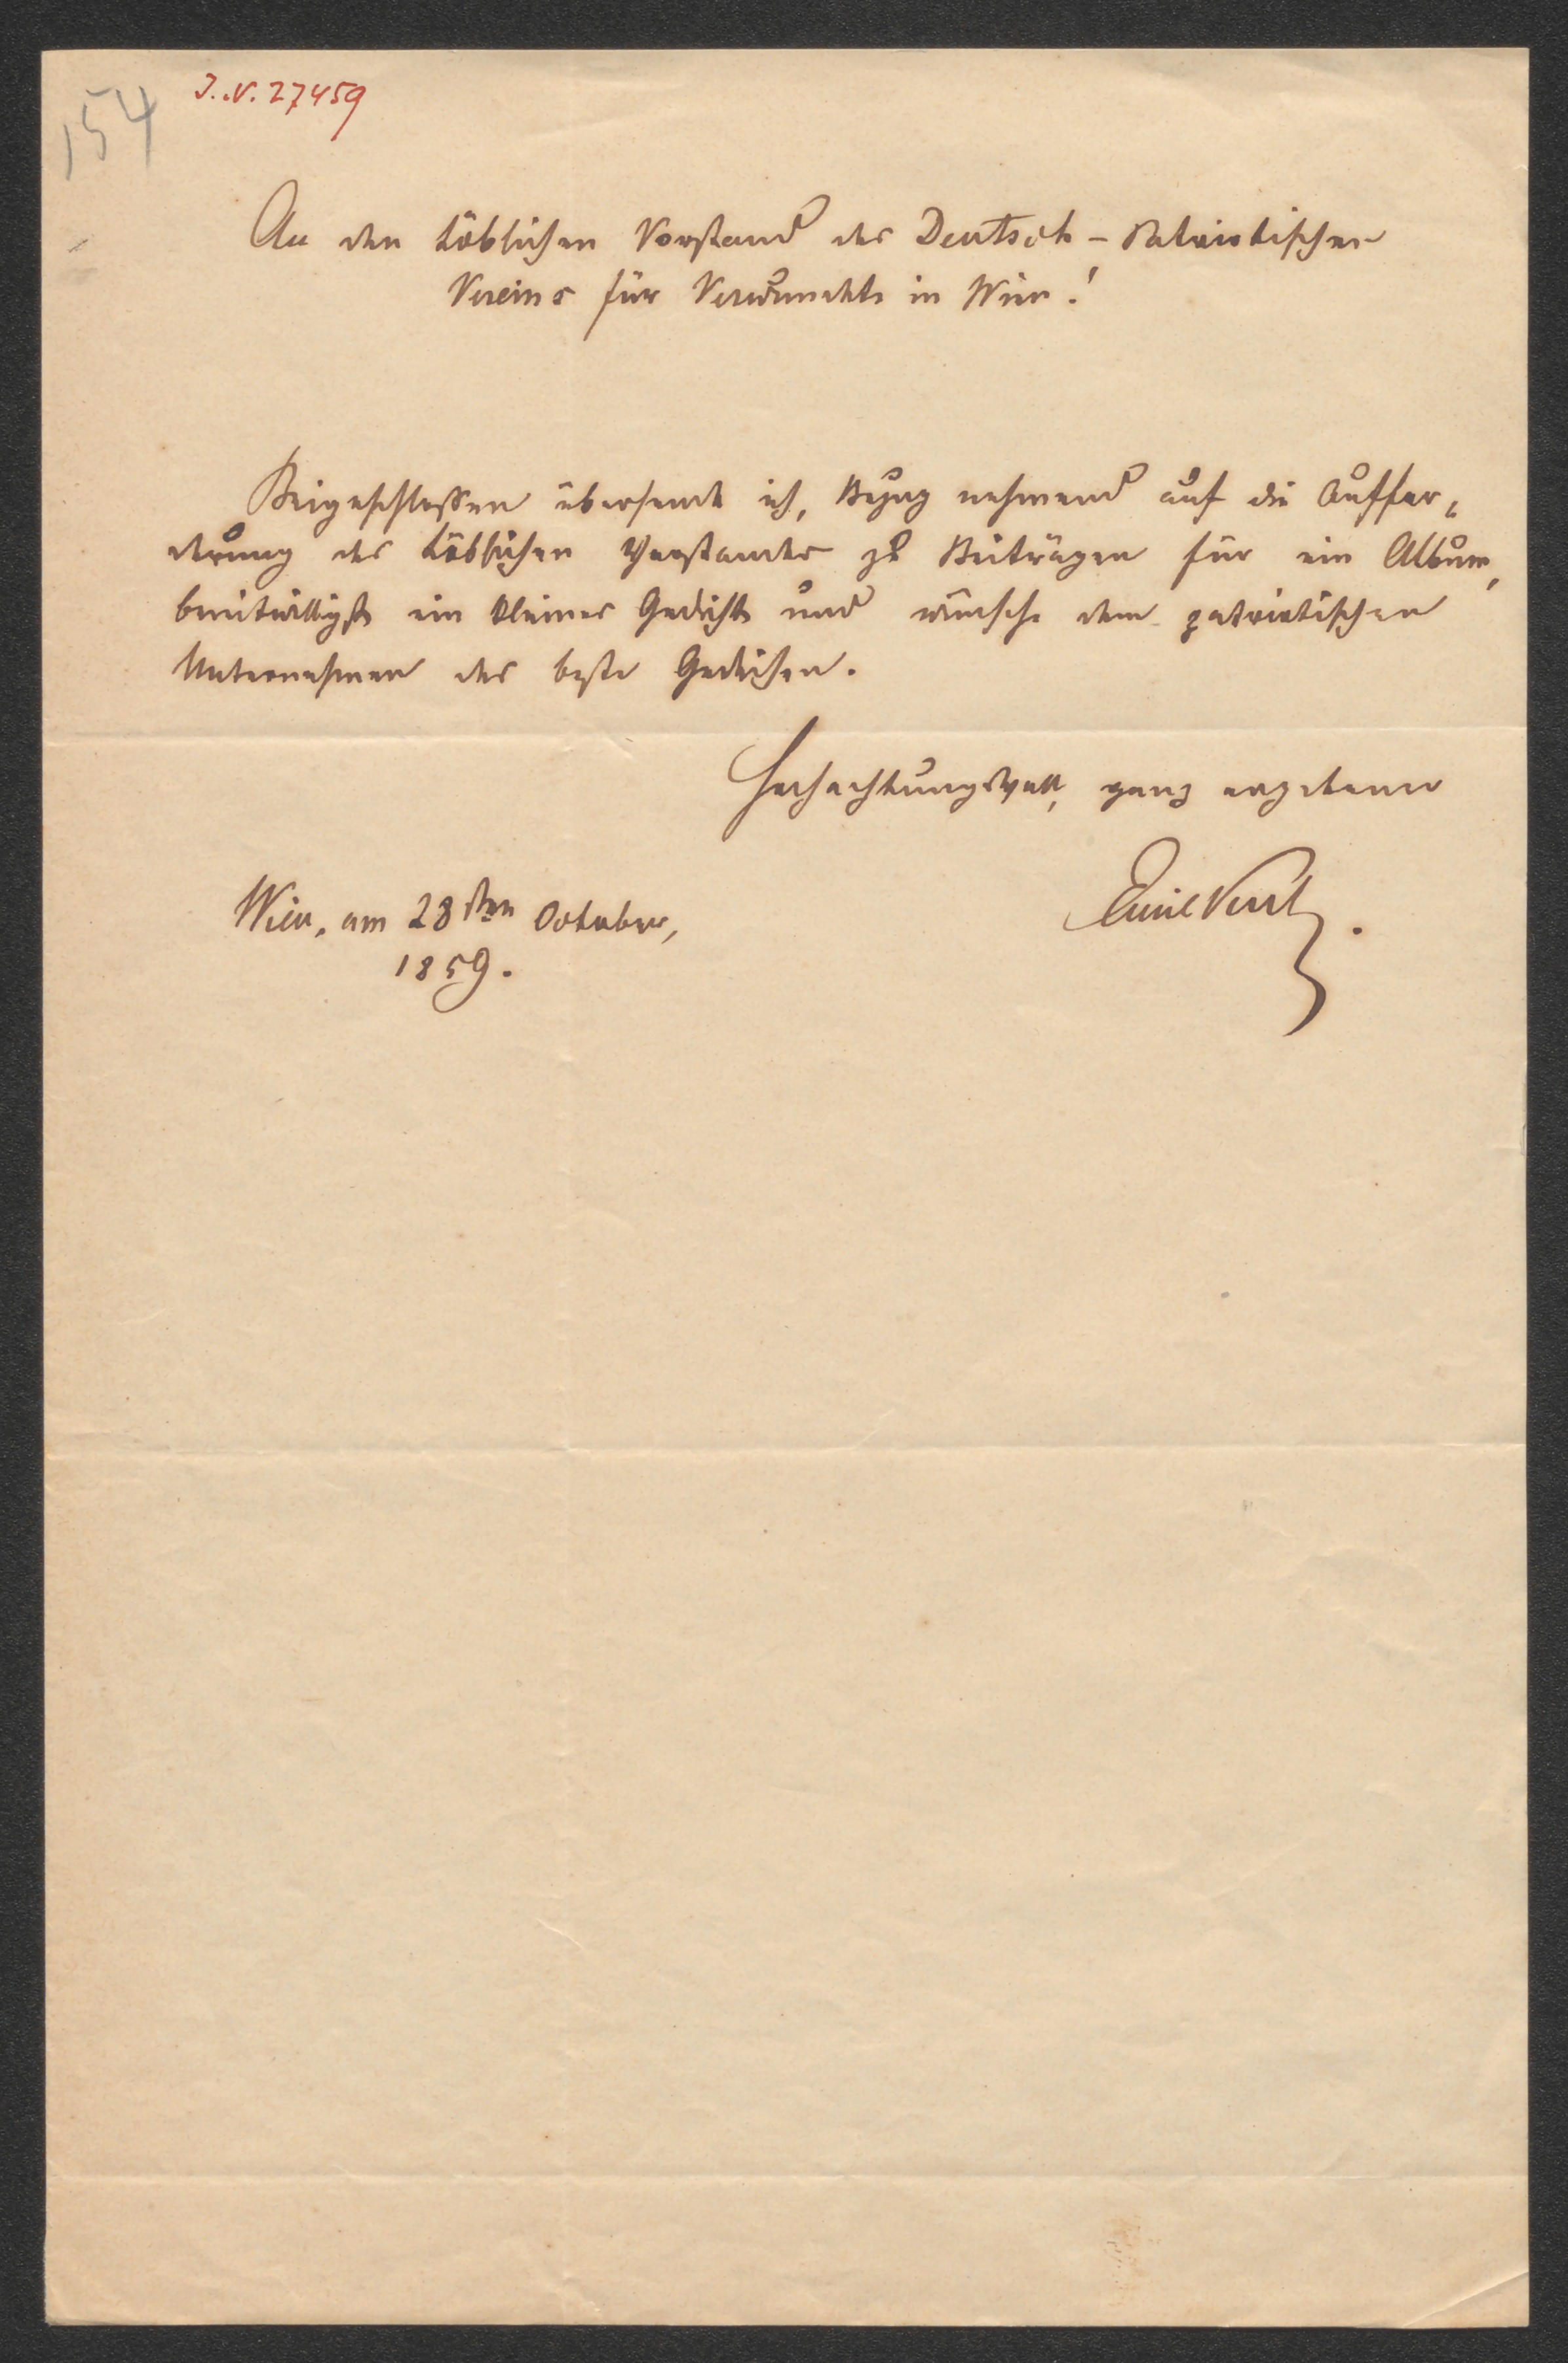 154
J.N. 27459
An den löblichen Vorstand des Deutsch-Patriotischen
Vereins für Verwundete in Wien!
Beigeschlossen übersende ich, Bezug nehmend auf die Auffor„
derung des löblichen Vorstandes zu Beiträgen für ein Album,
bereitwilligst ein kleines Gedicht und wünsche dem patriotischen
Unternehmen das beste Gedeihen.
Hochachtungsvoll, ganz ergebener
Emil
Wien, am 28sten October,
1859.